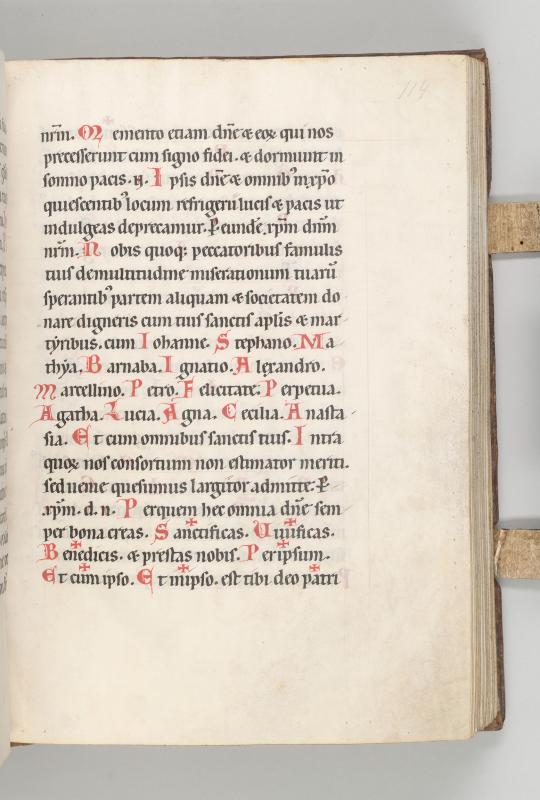 114
nr̄m. Memento etiam dn̄e ⁊ eoꝝ qui nos
precesserunt cum signo fidei. ⁊ dormiunt in
somno pacis. n̄. Ipsis dn̄e ⁊ omnibꝰ in xp̄o
quiescentibꝰ locum refrigerii lucis ⁊ pacis ut
indulgeas deprecamur. ꝑ eundē. xp̄m dn̄m
nr̄m. Nobis quoqꝫ peccatoribus famulis
tuis de multitudine miserationum tuarū
sperantibꝰ partem aliquam ⁊ societatem do
nare digneris cum tuis sanctis apl̄is ⁊ mar
tyribus. cum Iohanne. Stephano. Ma
thya. Barnaba. Ignatio. Alexandro.
Marcellino. Petro. Felicitate. Perpetua.
Agatha. Lucia. Agna. Cecilia. Anasta
sia. Et cum omnibus sanctis tuis. Intra
quoꝝ nos consortium non estimator meriti.
sed uenie quesumus largitor admitte. ꝑ
.xp̄m. d. n. Per quem hec omnia dn̄e sem
per bona creas. Sancti✠ficas. Uiui✠ficas.
Bene✠dicis. ⁊ prestas nobis. Per ip✠sum.
Et cum ✠ ipso. Et in ✠ ipso. est tibi deo pa✠tri